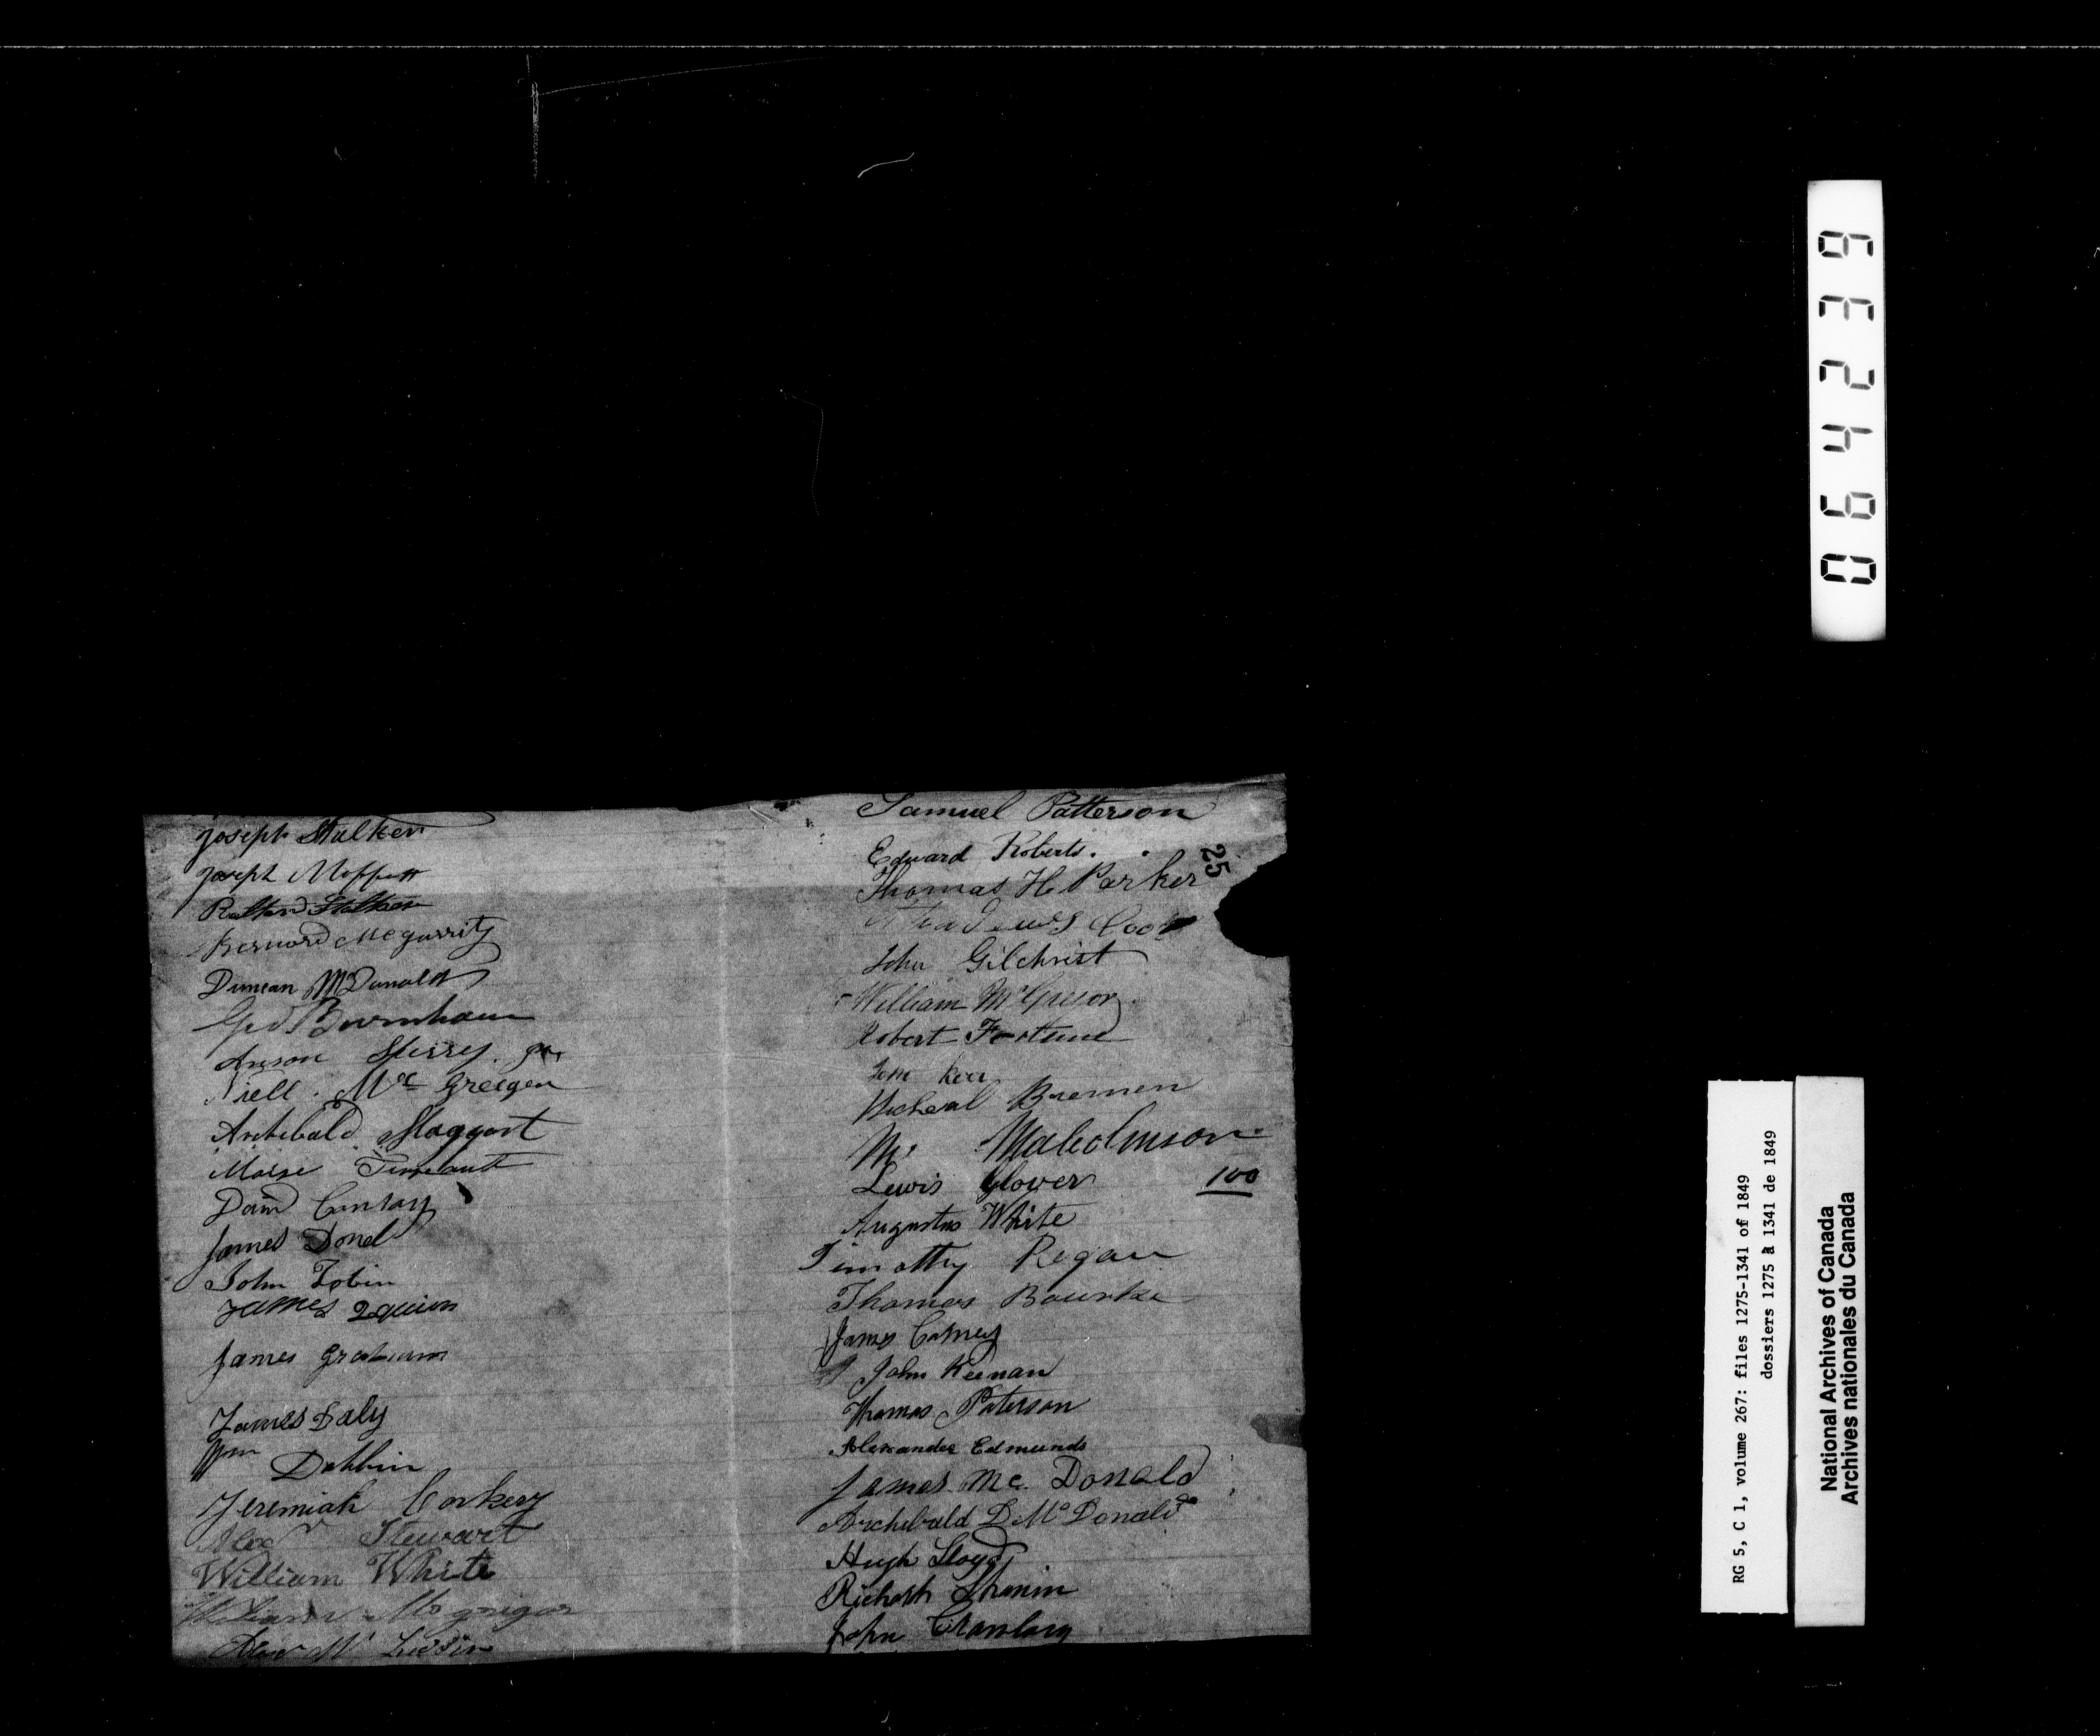 Joseph Stalker
Joseph Moffett
Stalker
Bernard Mcgarrity
Duncan McDonald
Geo Burnham
Anson
Niell Mc Greigor
Archibald Maggart
Moise
James Donel
John Tobin
James Quinn
James Graham
James Daly
Wm Dobbin
Jeremiah Corkery
Alexr Stewart
William White
William Mcgrigor
Alexr Mc
Samuel Patterson
Edward Roberts.
25
Thomas H Parker
Cook
John Gilchrist
William McGregor
Robert Fortune
Kerr
Micheal Brennen
Mr Malcolmson
Lewis Glover
100
Augustus White
Timothy Regan
Thomas Bourke
James
John Keenan
Thomas Paterson
Alexander Edmunds
James Mc. Donald
Archibald D McDonald
Hugh Lloyd
Richard
John
064239
RG 5, C 1, volume 267: files 1275-1341 of 1849
dossiers 1275 à 1341 de 1849
National Archives of Canada
Archives nationales du Canada